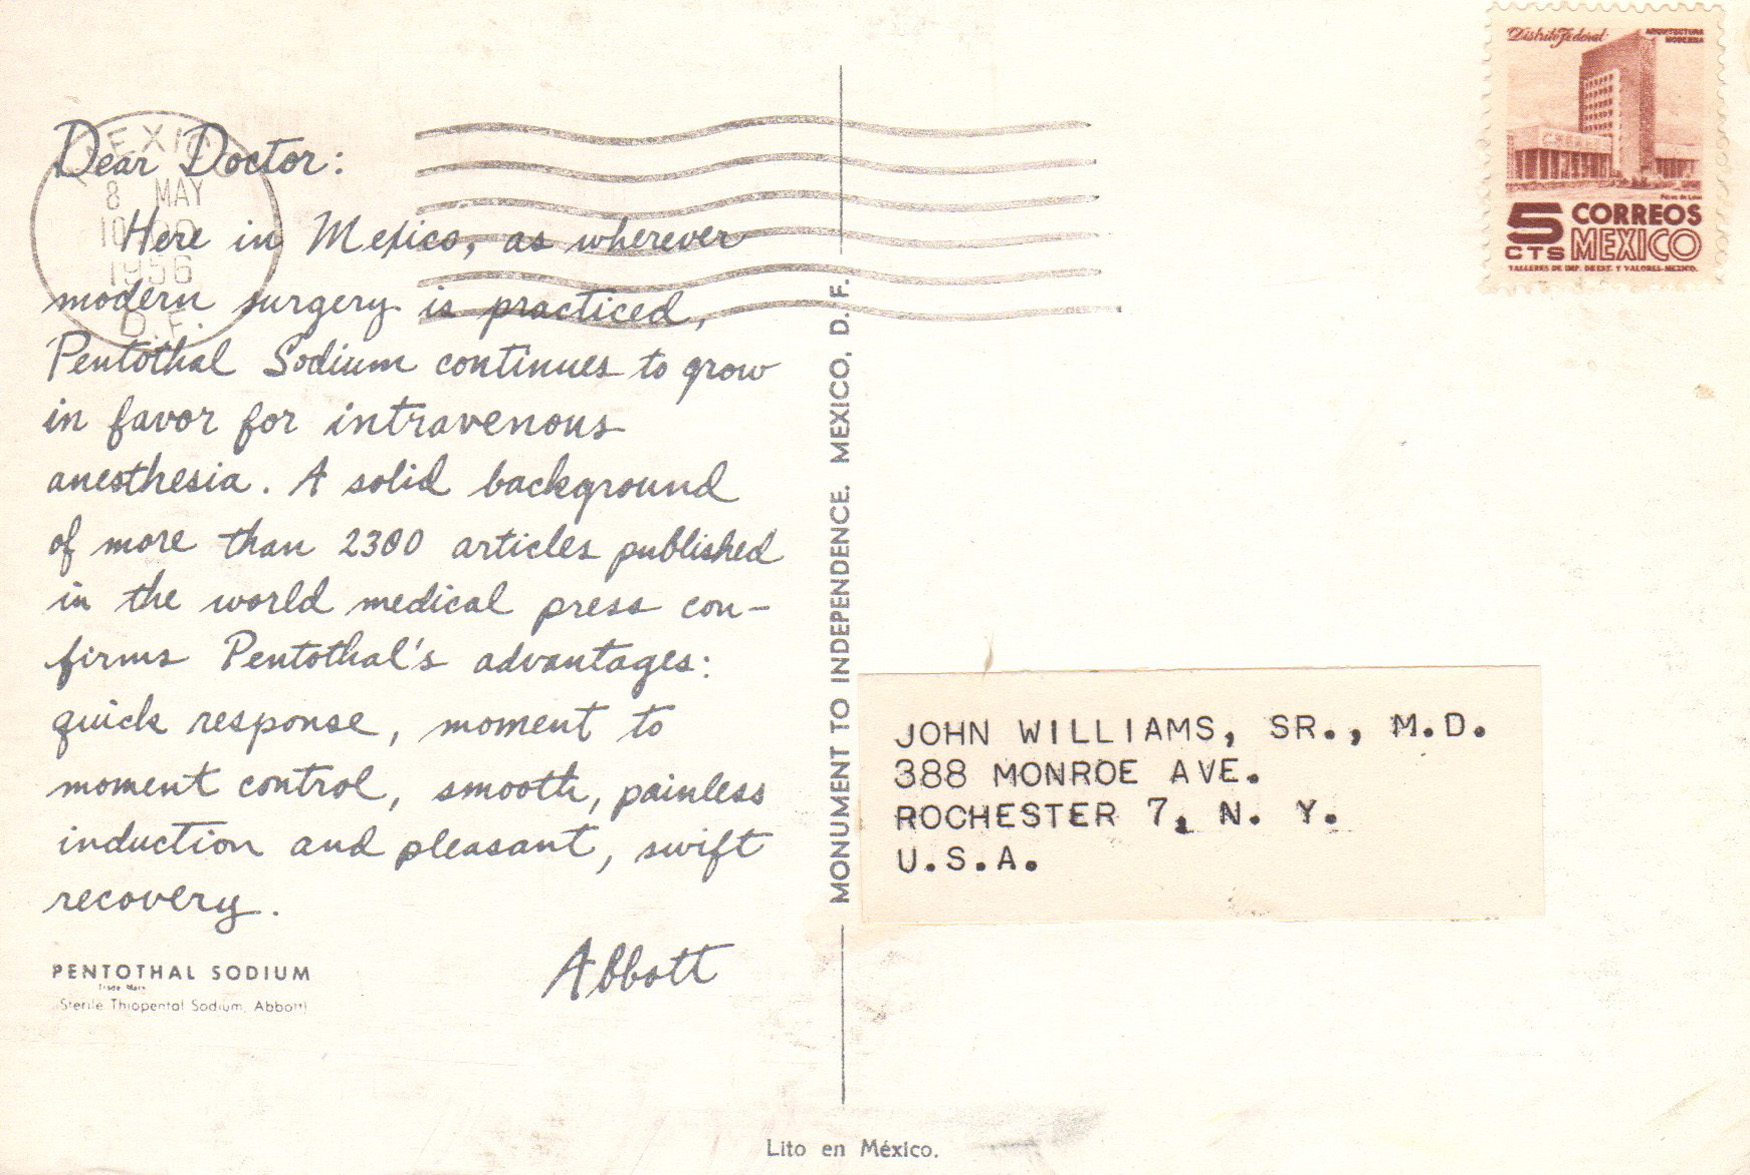 Dear Doctor:
Here in Mexico, as wherever
modern surgery is practiced,
Pentothal Sodium continues to grow
in favor for intravenous
anesthesia. A solid background
of more than 2300 articles published
in the world medical press con-
firms Pentothal's advantages:
quick response, moment to
moment control, smooth, painless
induction and pleasant, swift
recovery.
Abbott
PENTOTHAL SODIUM
Trade Mark
(Sterile Thiopental Sodium, Abbott)
MEXICO
8 MAY
1956
D.F.
MONUMENT TO INDEPENDENCE. MEXICO, D. F.
Distrito Federal
ARQUITECTURA
MODERNA
5 CTS
CORREOS
MEXICO
TALLERES DE IMP. DE EST. Y VALORES-MEXICO.
JOHN WILLIAMS, SR., M.D.
388 MONROE AVE.
ROCHESTER 7, N. Y.
U.S.A.
Lito en México.